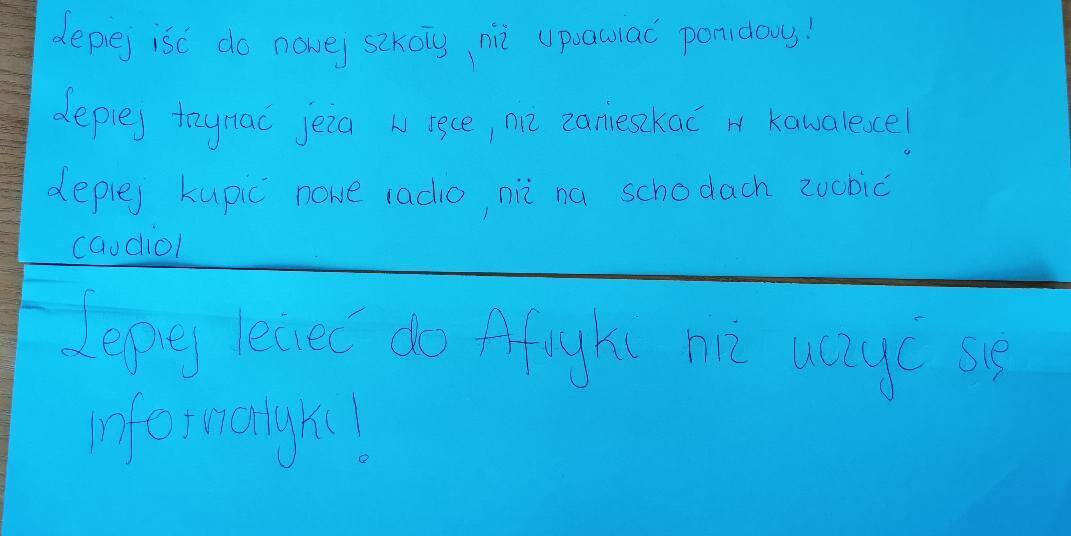 Lepiej iść do nowej szkoły, niż uprawiać pomidory!
Lepiej trzymać jeża w ręce, niż zamieszkać w kawalerce!
Lepiej kupić nowe radio, niż na schodach zrobić
cardio!
Lepiej lecieć do Afryki niż uczyć się
informatyki!